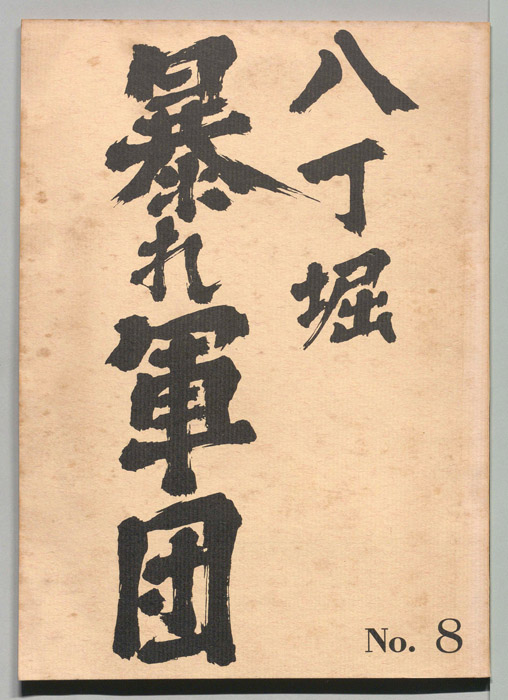 八丁堀
暴れ軍団
No. 8